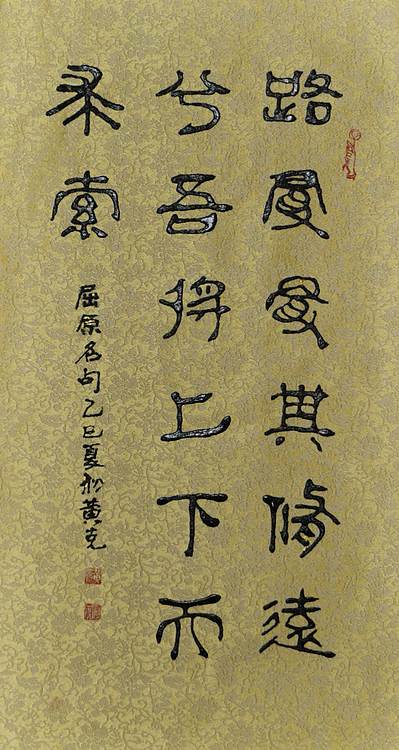 路曼曼其修遠
兮吾将上下而
求索
屈原名句乙巳夏初黄克